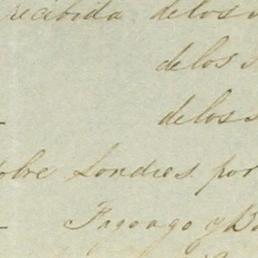 recibida de los
de los
de los
sobre Londres por
Fagoaga y